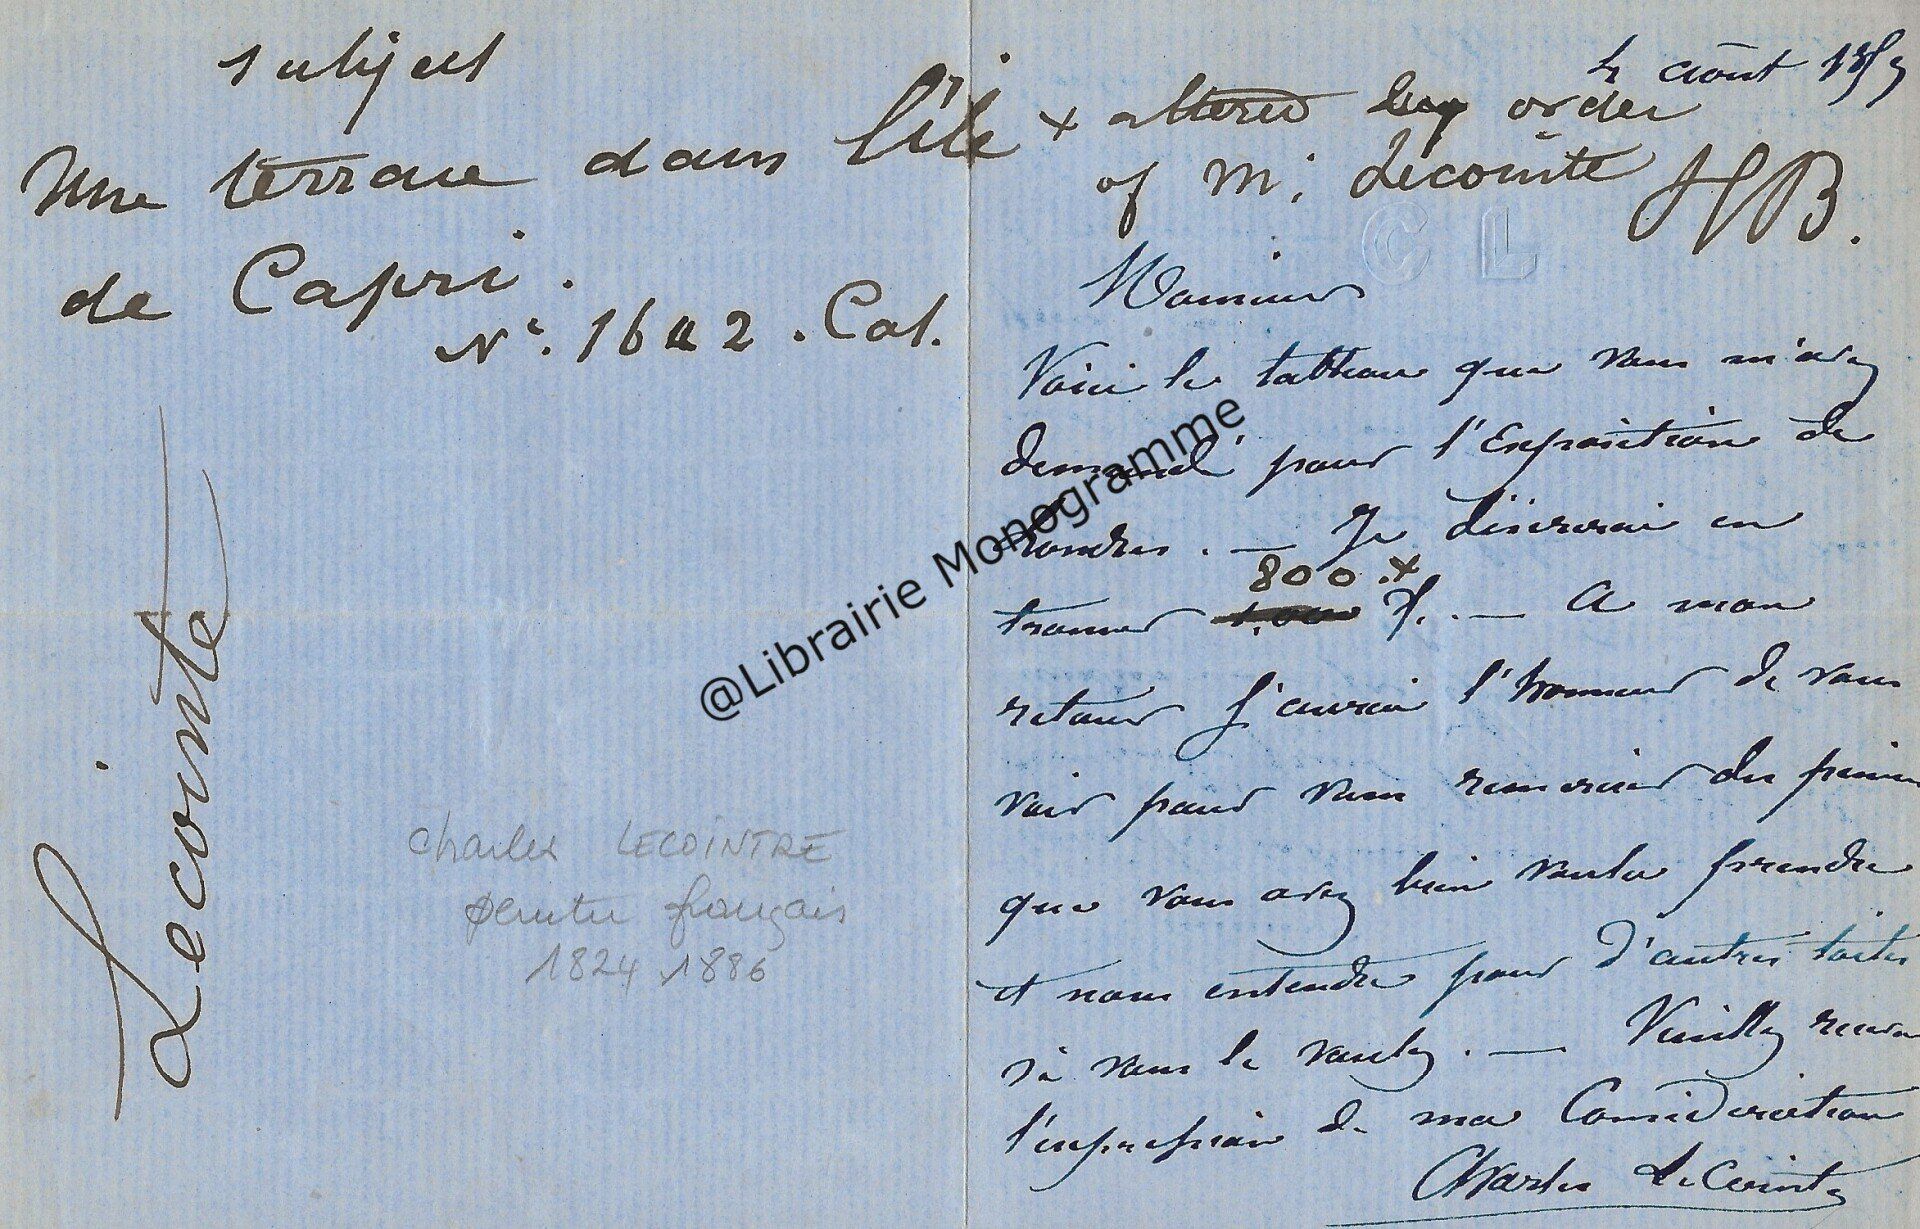 subject
Une terrasse dans l'île
de Capri.
N°. 1642. Cat.
Lecointe
Charles LECOINTRE
peintre français
1824 1886
@Librairie Monogramme
4 août
+ altered by order
of Mr. Lecointe HB.
C L
Monsieur
Voici le tableau que vous m'avez
demandé pour l'Exposition de
Londres. — Je désirerai en
800 +
trouver 1.000 f. — A mon
retour j'aurai l'honneur de vous
voir pour vous remercier des peines
que vous avez bien voulu prendre
et nous entendre pour d'autres toiles
si vous le voulez. — Veuillez recevoir
l'expression de ma Considération
Charles LeCointe